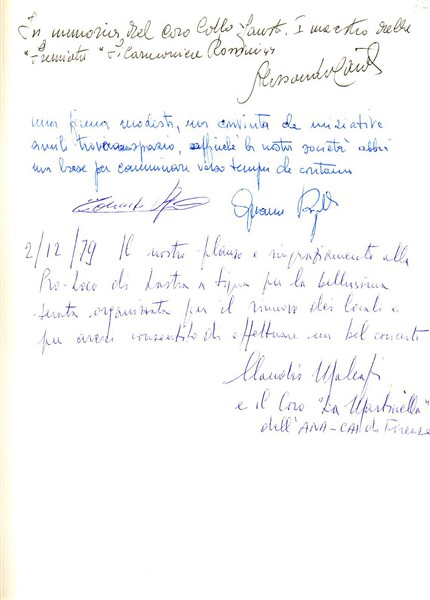 In memoria del Caro Collega Fausto. I maestro della
"Premiata" Filarmonica Rossini"
Alessandro
una firma modesta, ma convinta che iniziative
simili trovino spazio, affinché la nostra società abbia
una base per camminare verso tempi che contano
2/12/79 Il nostro plauso e ringraziamento alla
Pro-Loco di Lastra a Signa per la bellissima
serata organizzata per il rinnovo dei locali e
per averci consentito di effettuare un bel concerto
Claudio Malcapi
e il Coro "La Martinella"
dell'ANA-CAI di Firenze